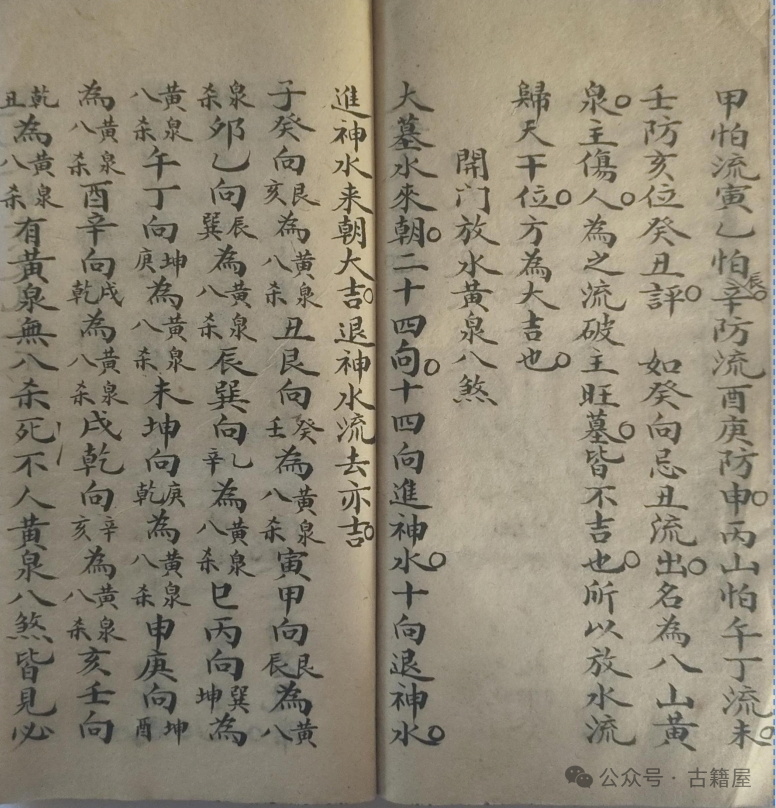 甲怕流寅乙怕辰。辛防流酉庚防申。丙山怕午丁流未。
壬防亥位癸丑評。如癸向忌丑流出。名為八山黃
泉。主傷人。為之流破主旺墓。皆不吉也。所以放水流
歸天干位。方為大吉也。
開门放水黃泉八煞
大墓水來朝。二十四向。十四向進神水。十向退神水。
進神水来朝大吉。退神水流去亦吉。
子癸向艮亥為黃泉八杀丑艮向癸壬為黃泉八杀寅甲向艮辰為黃八
泉杀夘乙向辰巽為黃泉八杀辰巽向乙辛為黃泉八杀巳丙向巽坤為
黃泉八杀午丁向坤庚為黃泉八杀未坤向庚乾為黃泉八杀申庚向坤酉
為黃泉八杀酉辛向戌乾為黃泉八杀戌乾向辛亥為黃泉八杀亥壬向
乾丑為黃泉八杀有黃泉無八杀死不人黃泉八煞皆見必
公众号·古籍屋